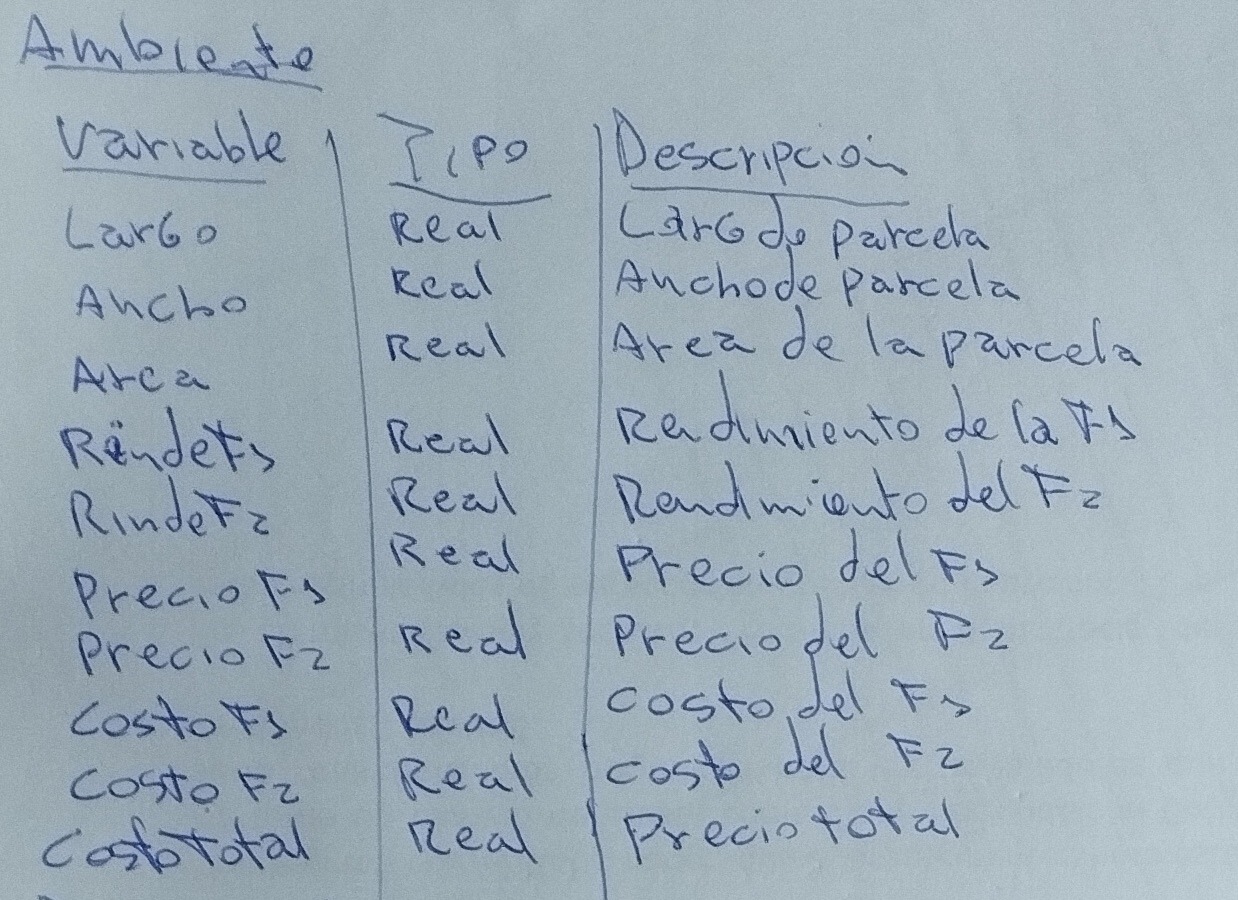 Ambiente
Variable | Tipo | Descripción
Largo Real Largo de parcela
Ancho Real Ancho de parcela
Area Real Area de la parcela
RindeF1 Real Rendimiento de la F1
RindeF2 Real Rendimiento del F2
Precio F1 Real Precio del F1
Precio F2 Real Precio del F2
Costo F1 Real Costo del F1
Costo F2 Real Costo del F2
Costo Total Real Precio total